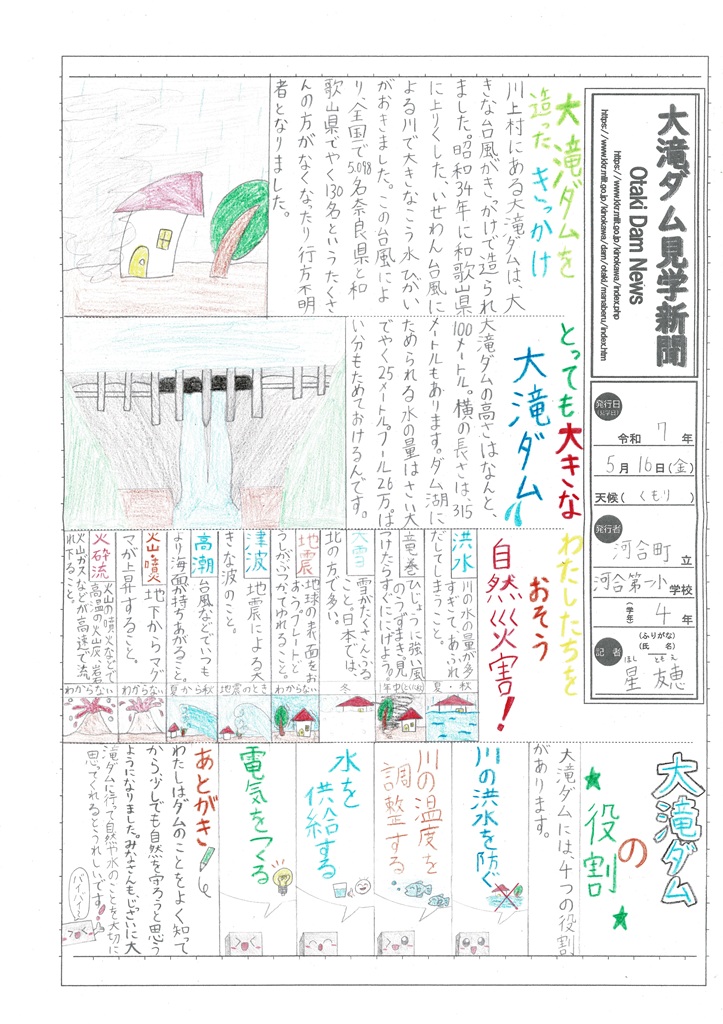 大滝ダム見学新聞
Otaki Dam News
https://www.kkr.mlit.go.jp/kinokawa/index.php
https://www.kkr.mlit.go.jp/kinokawa/dam/otaki/manaberu/index.htm
発行日
(見学日)
令和 7 年
5月16日(金)
天候( くもり )
発行者
河合町 立
河合第一小 学校
(学年) 4 年
記者
(ふりがな)
(氏名)
ほし ともえ
星 友恵
大滝ダムを
造った きっかけ
川上村にある大滝ダムは、大
きな台風がきっかけで造られ
ました。昭和34年に和歌山県
に上りくした、いせわん台風に
よる川で大きなこう水ひがい
がおきました。この台風によ
り、全国で5,098名奈良県と和
歌山県でやく130名というたくさ
んの方がなくなったり行方不明
者となりました。
とっても大きな
大滝ダム
大滝ダムの高さはなんと、
100メートル。横の長さは、315
メートルもあります。ダム湖に
ためられる水の量はさい大
でやく25メートル。プール26万ぱ
い分もためておけるんです。
わたしたちを
おそう
自然災害!
洪水
川の水の量が多
すぎて、あふれ
だしてしまうこと。
夏・秋
竜巻
ひじょうに強い風
のうずまき。見
つけたらすぐににげよう。
1年中(とくに秋)
大雪
雪がたくさんふる
こと。日本では、
北の方で多い。
冬
地震
地球の表面をお
おうプレートど
うしがぶつかてゆれること。
わからない
津波
地震による大
きな波のこと。
地震のとき
高潮
台風などでいつも
より海面が持ちあがること。
夏から秋
火山・噴火
地下からマグ
マが上昇すること。
わからない
火砕流
火山の噴火などで
高温の火山灰、岩石
火山ガスなどが高速で流
れ下ること。
わからない
大滝ダム
の
役割
大滝ダムには、4つの役割
があります。
川の洪水を防ぐ
川の温度を
調整する
水を
供給する
電気をつくる
あとがき
わたしはダムのことをよく知って
から少しでも自然を守ろうと思う
ようになりました。みなさんも、じっさいに大
滝ダムに行って自然や水のことを大切に
思ってくれるとうれしいです。
バイバーイ